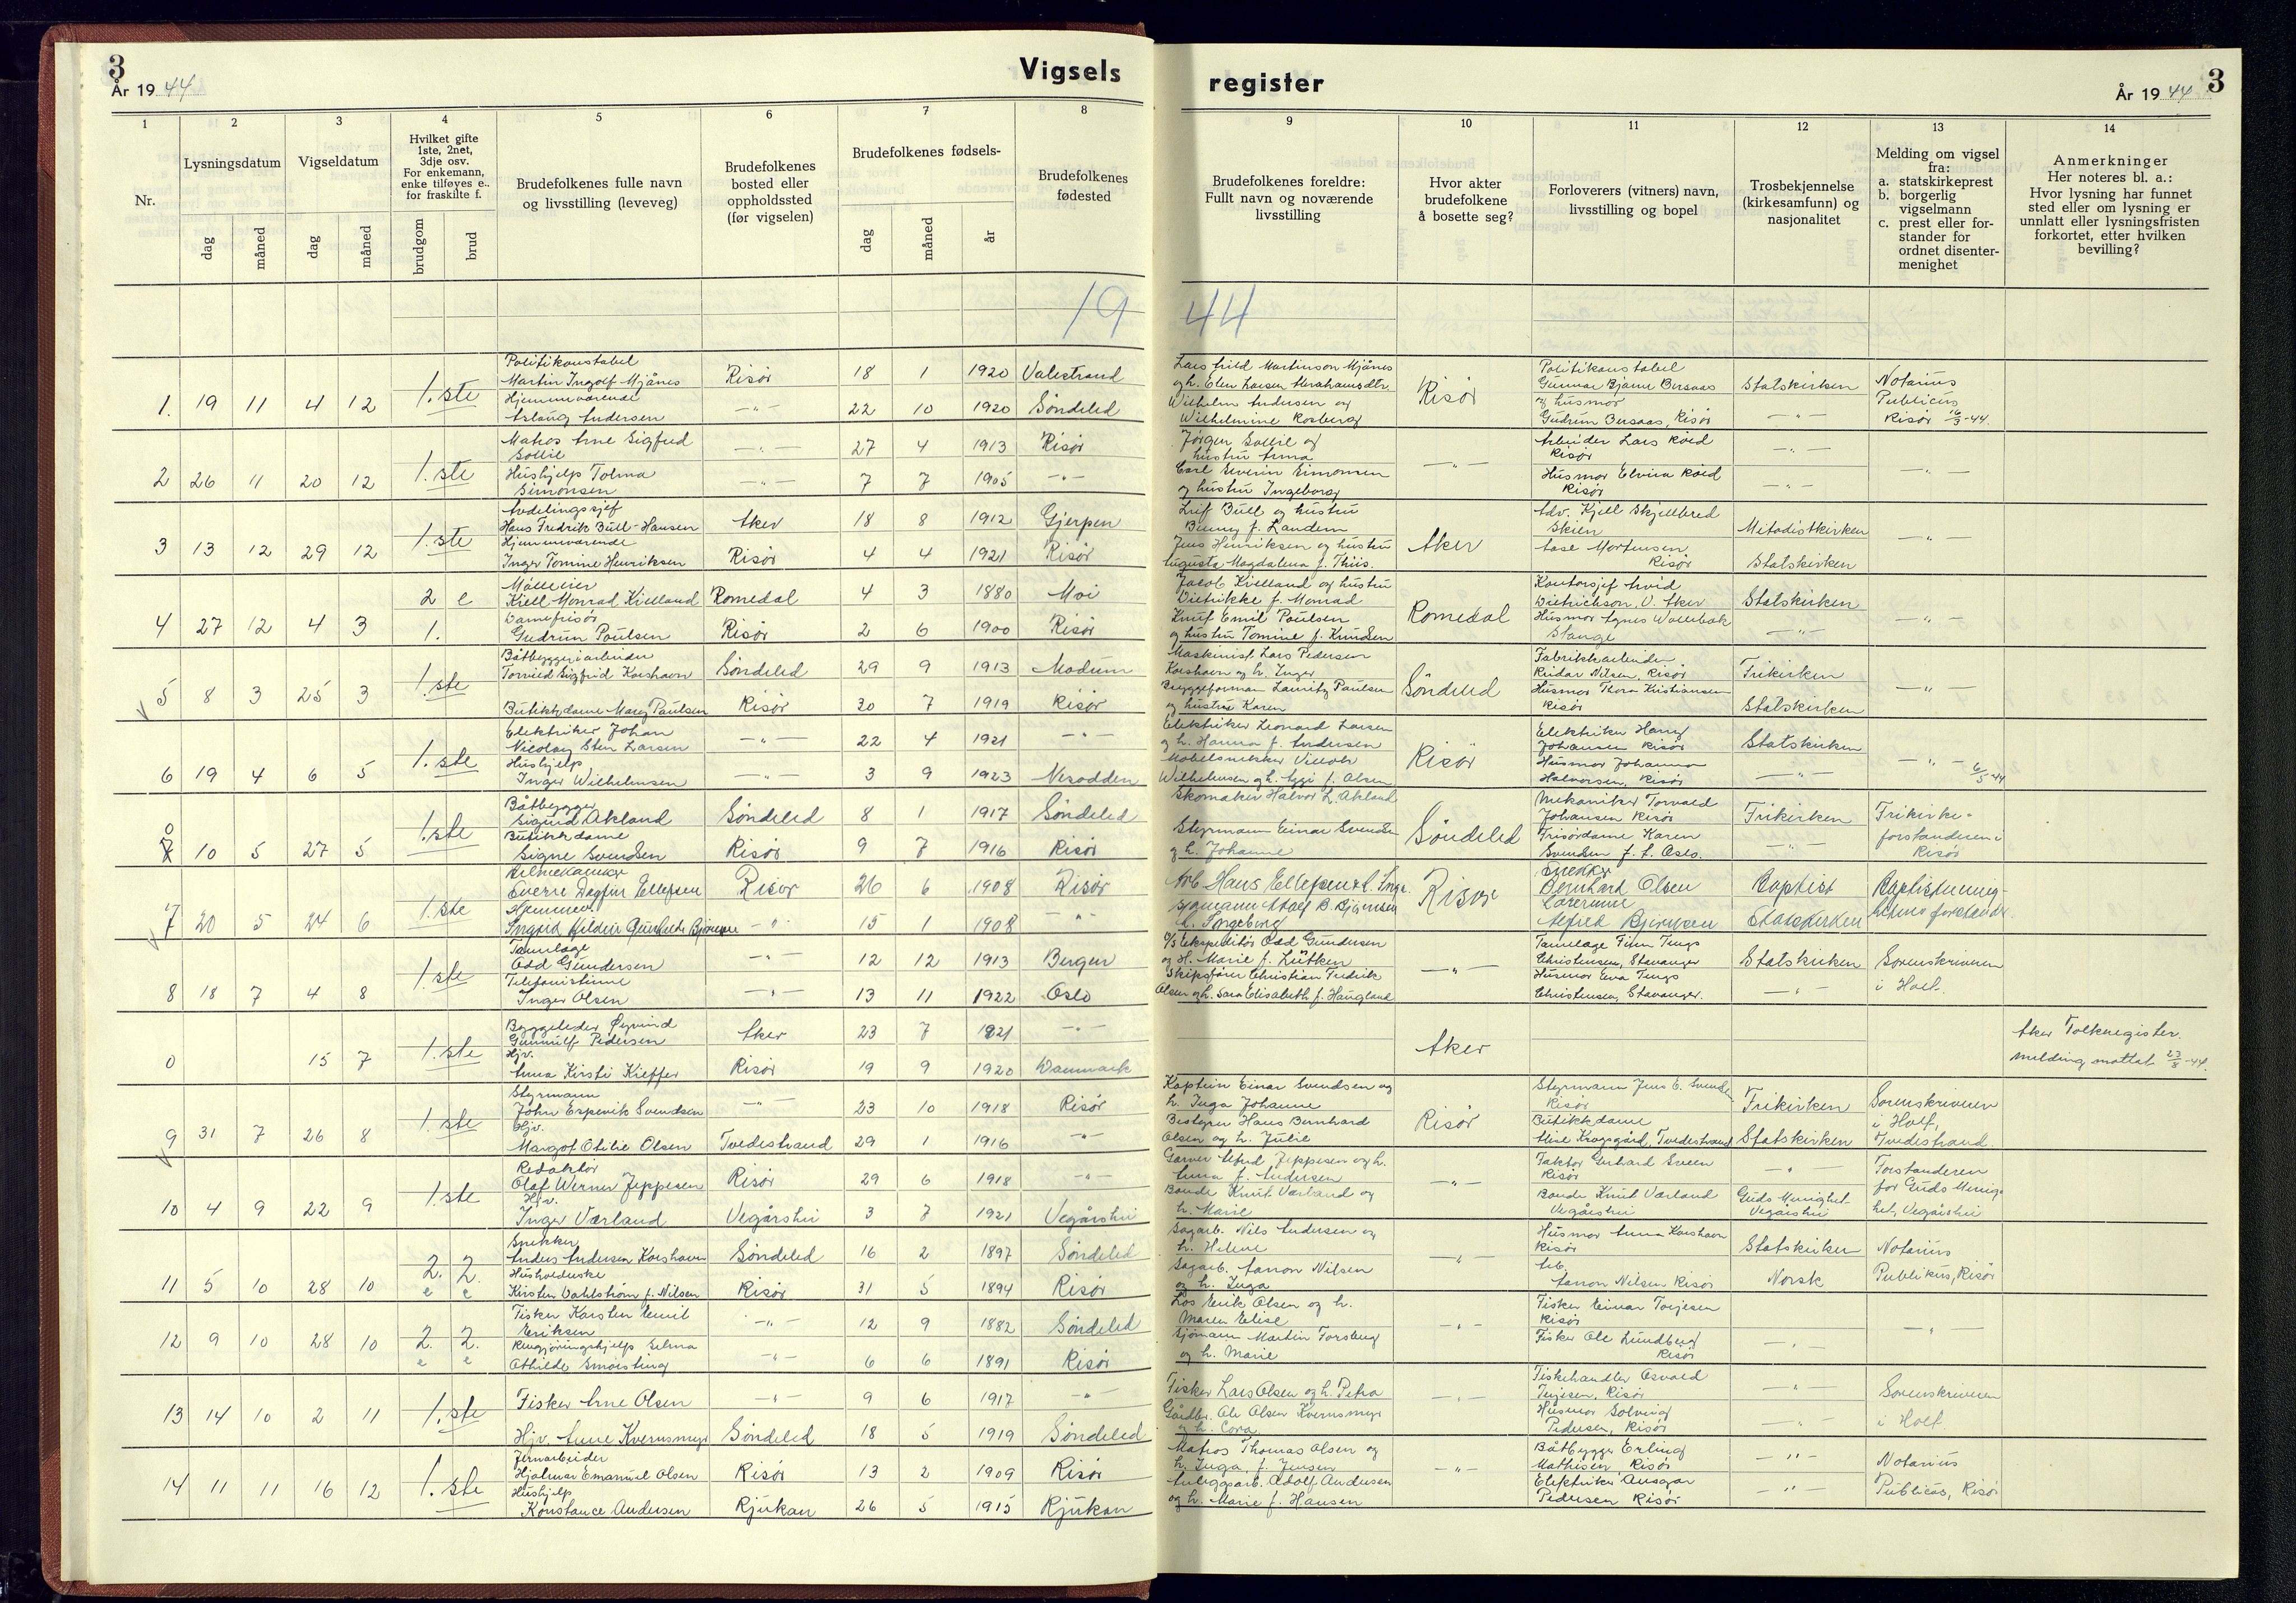 3
År 19 44
Vigsels
register
År 19 44
3
1
2
3
4
5
6
7
8
9
10
11
12
13
14
Nr.
Lysningsdatum
dag
måned
Vigseldatum
dag
måned
Hvilket gifte
1ste, 2net,
3dje osv.
For enkemann,
enke tilføyes e..
for fraskilte f.
brudgom
brud
Brudefolkenes fulle navn
og livsstilling (leveveg)
Brudefolkenes
bosted eller
oppholdssted
(før vigselen)
Brudefolkenes fødsels-
dag
måned
år
Brudefolkenes
fødested
Brudefolkenes foreldre:
Fullt navn og noværende
livsstilling
Hvor akter
brudefolkene
å bosette seg?
Forloverers (vitners) navn,
livsstilling og bopel
Trosbekjennelse
(kirkesamfunn) og
nasjonalitet
Melding om vigsel
fra:
a. statskirkeprest
b. borgerlig
vigselmann
c. prest eller for-
stander for
ordnet disenter-
menighet
Anmerkninger
Her noteres bl. a.:
Hvor lysning har funnet
sted eller om lysning er
unnlatt eller lysningsfristen
forkortet, etter hvilken
bevilling?
19 44
1. 19 11 4 12 1.ste
Politikonstabel
Martin Ingolf Mjånes Risör 18 1 1920 Valestrand
Hjemmeværende
Aslaug Andersen —"— 22 10 1920 Söndeled
Martinson Mjånes
Wilhelm Andersen og
Wilhelmine Rosberg
Risör
Politikonstabel
Gunnar Bjarne Bersaas
og husmor
Gudrun Bersaas, Risör
Statskirken
—"—
Notarius
Publicus
Risör 16/3-44.
2 26 11 20 12 1.ste
Matros Arne Sigfred
Sollie —"— 27 4 1913 Risör
Hushjelp Tolma
Simonsen —"— 7 7 1905 —"—
Jörgen Sollie og
hustru Anna
Carl Severin Simonsen
og hustru Ingeborg
—"—
Arbeider Lars Röed
Risör
Husmor Elvira Röed
Risör
—"—
—"—
—"—
3 13 12 29 12 1.ste
Avdelingssjef
Hans Fredrik Bull-Hansen Aker 18 8 1912 Gjerpen
Hjemmeværende
Inger Tomine Henriksen Risör 4 4 1921 Risör
Leif Bull og hustru
Benny f. Landem
Jens Henriksen og hustru
Augusta Magdalena f. Thiis.
Aker
Adv. Kjell Skjellbred
Skien
Aase Mortensen
Risör
Metodistkirken
Statskirken
—"—
4 27 12 4 3 2 e
1.
Mölleeier
Kiell Monrad Kielland Romedal 4 3 1880 Moi
Damefrisör
Gudrun Poulsen Risör 2 6 1900 Risör
Jacob Kielland og hustru
Diderikke f. Monrad
Knut Emil Poulsen
og hustru Tomine f. Knudsen
Romedal
Kontorsjef Arvid
Dietrichson, V. Aker
Husmor Agnes Wollebæk
Stange
Statskirken
—"—
—"—
5 8 3 25 3 1.ste
Båtbyggeriarbeider
Torvild Sigfrid Korshavn Söndeled 29 9 1913 Modum
Butikkdame Mary Paulsen Risör 30 7 1919 Risör
Maskinist Lars Pedersen
Korshavn og h. Inger
Bryggeformann Lauritz Paulsen
og hustru Karen
Söndeled
Fabrikkarbeider
Reidar Nilsen, Risör
Husmor Thora Kristiansen
Risör
Frikirken
Statskirken
—"—
6 19 4 6 5 1.ste
Elektriker Johan
Nicolay Sten Larsen —"— 22 4 1921 —"—
Hushjelp
Inger Wilhelmsen —"— 3 9 1923 Nesodden
Elektriker Leonard Larsen
og h. Hanna f. Andersen
Möbelsnekker
Wilhelmsen og h. Aggi f. Olsen
Risör
Elektriker Harry
Johansen Risör
Husmor Johanna
Halvorsen, Risör
Statskirken
—"—
—"— 6/5-44
0
7 10 5 27 5 1.ste
Båtbygger
Sigurd Akland Söndeled 8 1 1917 Söndeled
Butikkdame
Signe Svendsen Risör 9 7 1916 Risör
Skomaker Halvor L. Akland
Styrmann Einar Svendsen
og h. Johanne
Söndeled
Mekaniker Torvald
Johansen Risör
Frisördame Karen
Svendsen f. t. Oslo.
Frikirken
—"—
Frikirke-
forstanderen i
Risör
7 20 5 24 6 1.ste
Sverre Dagfin Ellefsen Risör 26 6 1908 Risör
Hjemmev.
Ingrid Hildur Bjørnsen —"— 15 1 1908 —"—
Arb Hans Ellefsen
Adolf B. Bjørnsen
h. Ingeborg
Risör
Snekker
Bernhard Olsen
Alfred Bjørnsen
Baptist
Statskirken
Baptistmenig-
hetens forstander
8 18 7 4 8 1.ste
Tannlæge
Odd Gundersen —"— 12 12 1913 Bergen
Telefonistinne
Inger Olsen —"— 13 11 1922 Oslo
Ekspeditör Odd Gundersen
og H. Marie f. Lütken
Skipsförer Christian Fredrik
Olsen og h. Sara Elisabeth f. Haugland
—"—
Tannlæge Finn Tengs
Christensen, Stavanger
Husmor Eva Tengs
Christensen, Stavanger.
Statskirken
—"—
Sorenskriveren
i Holt.
0 15 7 1.ste
Byggeleder Öyvind
Gunnulf Pedersen Aker 23 7 1921 —"—
Hjv.
Anna Kirsti Kieffer Risör 19 9 1920 Danmark
Aker
Aker Folkeregister.
melding mottatt 23/8-44.
9 31 7 26 8 1.ste
Styrmann
John Espevik Svendsen —"— 23 10 1918 Risör
Hjv.
Margot Otilie Olsen Tvedestrand 29 1 1916 —"—
Kaptein Einar Svendsen og
h. Inga Johanne
Bestyrer Hans Bernhard
Olsen og h. Julie
Risör
Styrmann Jens E. Svendsen
Risör
Butikkdame
Else Krogsgård, Tvedestrand
Frikirken
Statskirken
Sorenskriveren
i Holt,
Tvedestrand.
10 4 9 22 9 1.ste
Redaktör
Olaf Werner Jeppesen Risör 29 6 1918 —"—
Hjv.
Inger Værland Vegårshei 3 7 1921 Vegårshei
Garver Alfred Jeppesen og h.
Anna f. Andersen
Bonde Knut Værland og
h. Marie
—"—
Faktor Gerhard Sveen
Risör
Bonde Knut Værland
Vegårshei
—"—
Guds Menighet
Vegårshei
Forstanderen
for Guds Menig-
het, Vegårshei
11 5 10 28 10 2. e 2. e
Snekker
Anders Andersen Korshavn Söndeled 16 2 1897 Söndeled
Husholderske
Kirsten Dahlström f. Nilsen Risör 31 5 1894 Risör
Sagarb. Nils Andersen og
h. Helene
Sagarb. Aanon Nilsen
og h. Inga
—"—
Husmor Anna Korshavn
Risör
Arb.
Aanon Nilsen Risör
Statskirken
Norsk
Notarius
Publikus, Risör
12 9 10 28 10 2. e 2. e
Fisker Karsten Emil
Eriksen —"— 12 9 1882 Söndeled
Rengjöringshjelp Selma
Othilde Smörsting —"— 6 6 1891 Risör
Los Erik Olsen og h.
Maren Elise
Sjömann Martin Forsberg
og h. Marie
—"—
Fisker Einar Torjesen
Risör
Fisker Ole Lundberg
Risör
—"—
—"—
13 14 10 2 11 1.ste
Fisker Arne Olsen —"— 9 6 1917 —"—
Hjv. Anne Kvernsmyr Söndeled 18 5 1919 Söndeled
Fisker Lars Olsen og h. Petra
Gårdbr. Ole Olsen Kvernsmyr
og h. Cora
—"—
Fiskehandler Osvald
Terjesen, Risör
Husmor Solveig
Pedersen, Risör
—"—
—"—
Sorenskriveren
i Holt
14 11 11 16 12 1.ste
Jernarbeider
Hjalmar Emanuel Olsen Risör 13 2 1909 Risör
Hushjelp
Konstance Andersen Rjukan 26 5 1915 Rjukan
Matros Thomas Olsen og
h. Inga f. Jensen
Anleggsarb. Adolf Andersen
og h. Marie f. Hansen
—"—
Båtbygger Erling
Mathisen Risör
Elektriker Ansgar
Pedersen Risör
—"—
—"—
Notarius
Publicus, Risör